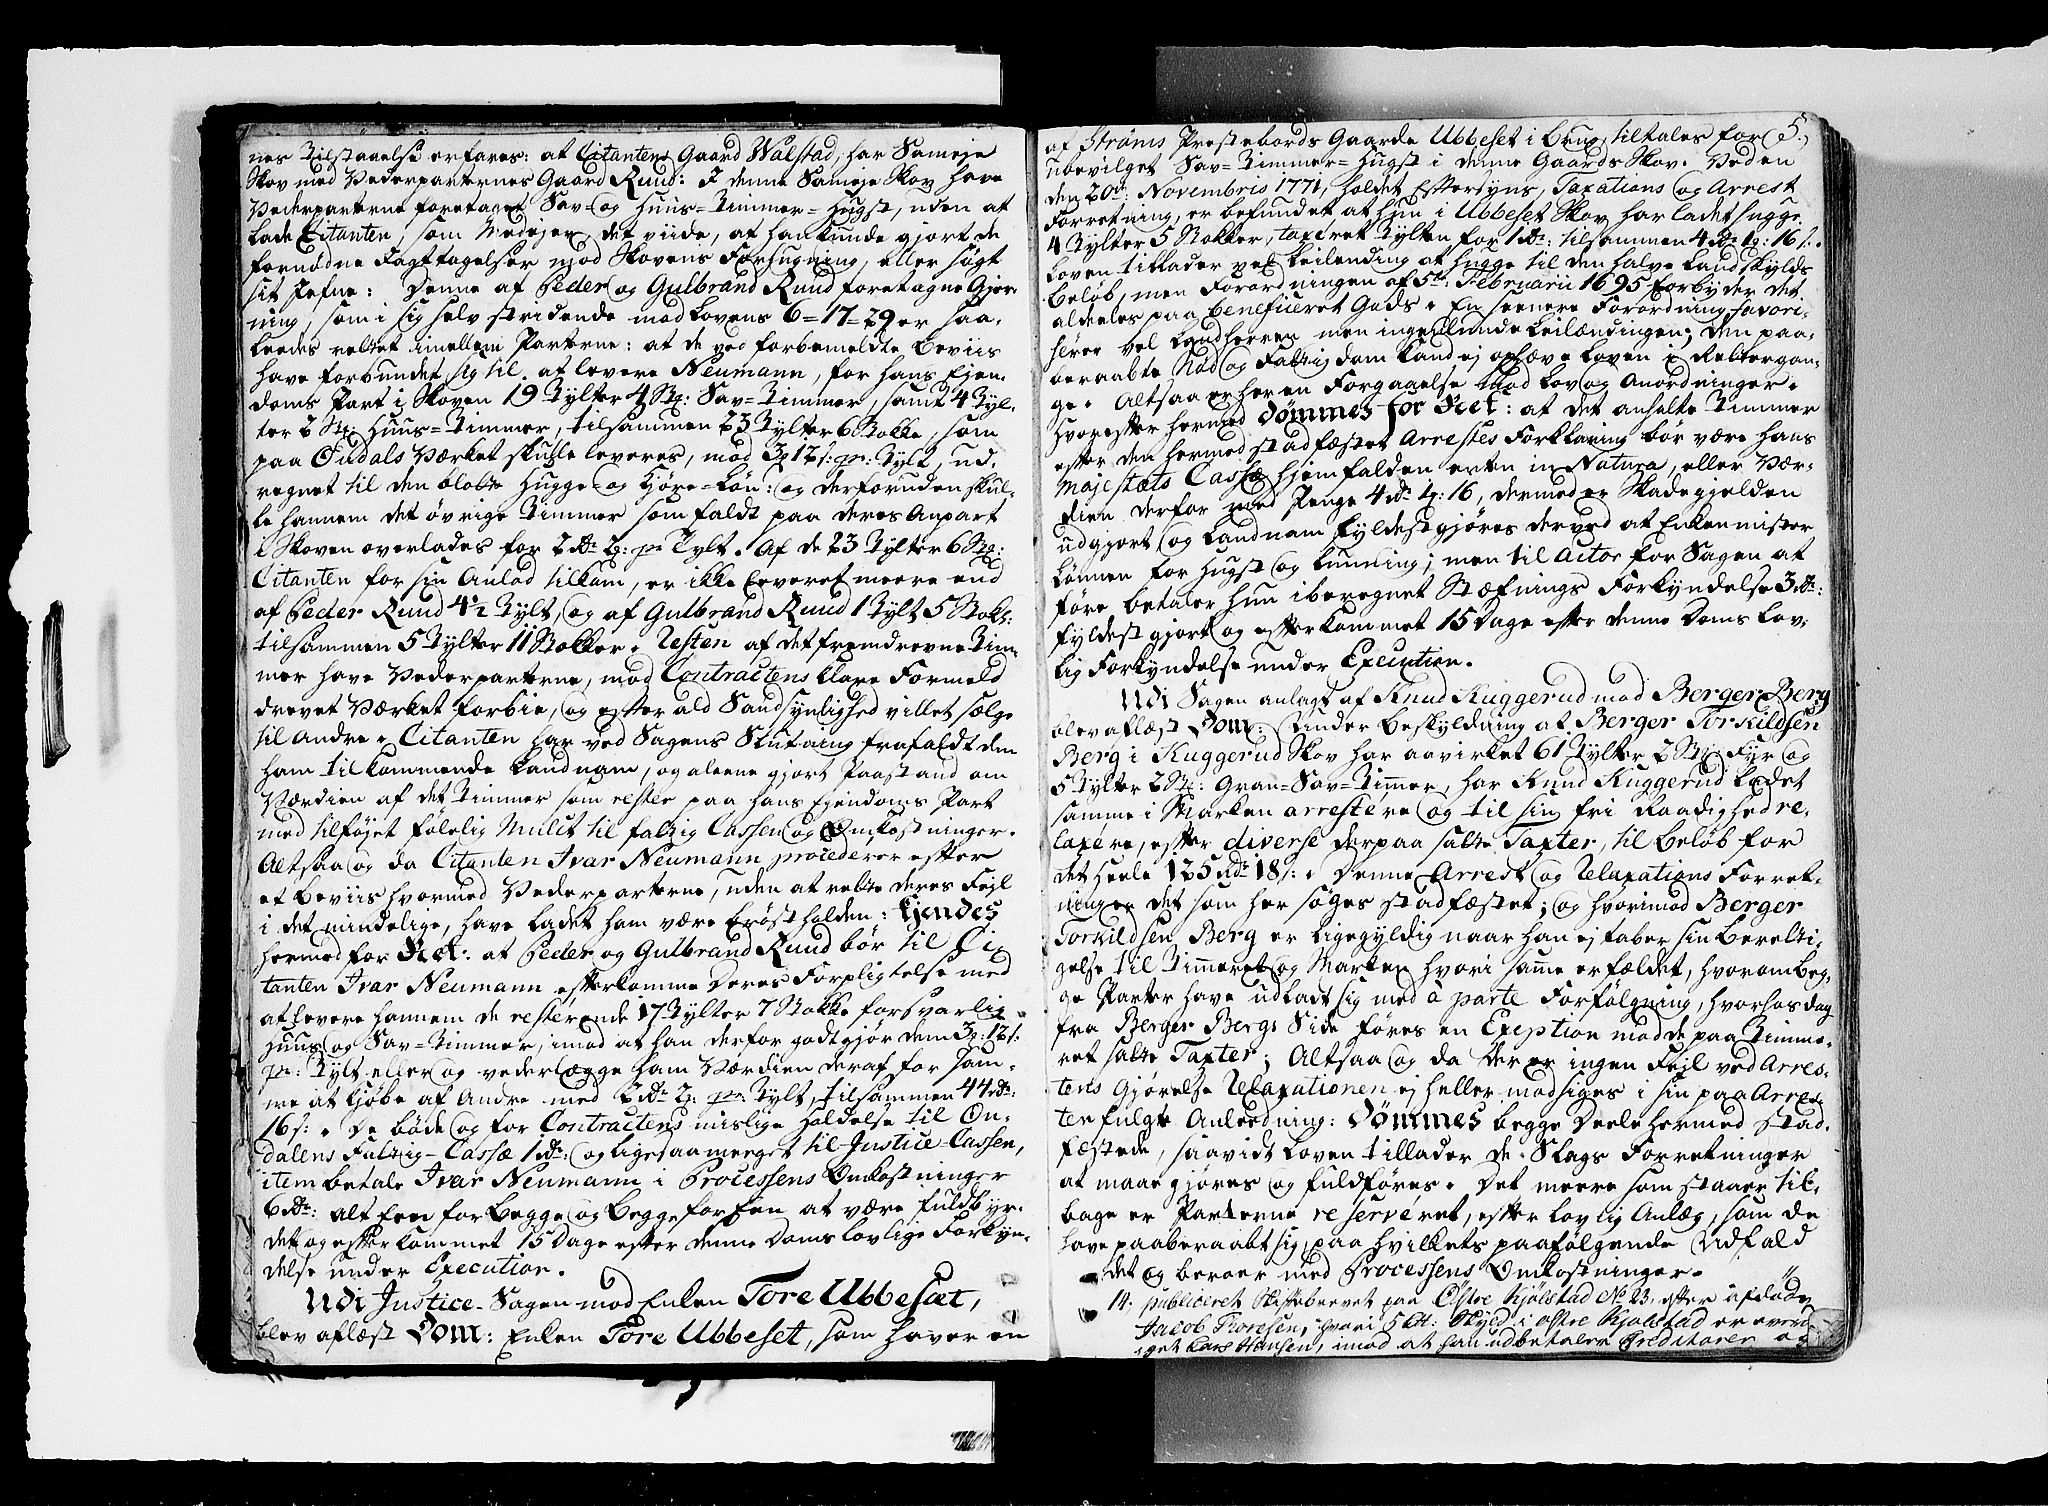 nes Tilstaaelse erfares: at Citantens Gaard Walstad, har Sameje
Skov med Vederparternes Gaard Ruud: I denne Sameje Skov have
Vederparterne foretaget Sav- og Huus-Timmer-Hugst, uden at
lade Citanten, som Medejer det viide, at han kunde gjort de
fornødne Iagttagelser mod Skovens Forhugning, eller søgt
sit Jefne: Denne af Peder og Gulbrand Ruud foretagne Gjer-
ning, som i sig selv stridende mod Lovens 6-17-29 er saa-
leedes rettet imellem Parterne: at de ved forbemeldte Beviis
have forbundet sig til at levere Neumann, for hans Ejen-
doms Part i Skoven 19 Tylter 4 St: Sav-Timmer, samt 4 Tyl-
ter 2 St: Huus-Timmer, tilsammen 23 Tylter 6 Stokke, som
paa Oudals Værket skulle leveres, mod 3 12 s: pr: Tylt, ud-
regnet til den blotte Hugge og Kjøre-Løn: og derforuden skul-
le hannem det øvrige Timmer som faldt paa deres Anpart
i Skoven overlades for 2 rd 2 pr Tylt. Af de 23 Tylter 6 St:
Citanten for sin Anlod tilkom, er ikke leveret meere end
af Peder Ruud 4½ Tylt, og af Gulbrand Ruud 1 Tylt 5 Stok:
tilsammen 5 Tylter 11 Stokker. Resten af det fremdrevne Tim-
mer have Vederparterne, mod Contractens klare Formeld
drevet Værket forbie, og efter ald Sandsynlighed villet sælge
til Andre. Citanten har ved Sagens Slutning frafaldt den
ham tilkommende Landnam, og aleene gjort Paastand om
Værdien af det Timmer som rester paa hans Ejendoms Part
med tilføjet følelig Mulct til fattig Cassen og Omkostninger.
Altsaa og da Citanten Ivar Neumann procederer efter
et Beviis hvormed Vederparterne, uden at rette deres Fejl
i det mindelige, have ladet ham være brøstholden: Kjendes
hermed for Ret: at Peder og Gulbrand Ruud bør til Ci-
tanten Ivar Neumann efterkomme deres Forpligtelse med
at levere hannem de resterende 17 Tylter 7 Stokke forsvarlig
Huus og Sav-Timmer, imod at han derfor godtgjør dem 3 : 12 s:
pr: Tylt eller og vederlægge ham Værdien deraf for sam-
me at kjøbe af Andre med 2 rd 2 pr: Tylt, tilsammen 44 rd:
16 s:. De bøde og for Contractens mislige holdelse til Ou-
dalens Fattig-Cassæ 1 rd: og ligesaameeget til Justice-Cassen,
item betale Ivar Neumann i Processens Omkostninger
6 rd: alt Een for Begge og Begge for Een at være fuldbyr-
det og efterkommet 15 Dage efter denne Doms lovlige Forkyn-
delse under Execution.
Udi Justice-Sagen mod Enken Tore Ubbesæt,
blev aflæst Dom: Enken Tore Ubbeset, som haver en
5.
af Strøms Præstebords Gaarde Ubbeset i brug, tiltales for
ubevilget Sav-Timmer-Hugst i denne Gaards Skov. Veden
den 20de Novembris 1771, holdet Eftersyns, Taxations og Arrest
Forretning, er befundet at hun i Ubbeset Skov har ladet hugge
4 Tylter 5 Stokker, taxeret Tylten for 1 rd: tilsammen 4 rd 1 : 16 s.
Loven tillader vel Leilending at hugge til den halve Landskylds
beløb, men Forordningen af 5te Februarii 1695 forbyder det
aldeeles paa beneficeret Gods. En seenere Forordning favori-
serer vel Landherren men ingenlunde Leilændingen; den paa-
beraabte Nød og Fattigdom kand ej ophæve Loven i Rettergan-
ge. Altsaa er heren Forgaaelse mod Lov og Anordninger.
Hvorefter hermed Dømmes for Ret: at det anholte Timmer
efter den hermed stadfæstet Arrestes Forklaring bør være Hans
Majestæts Cassæ hjemfalden enten in Natura, eller Vær-
dien derfor med Penge 4 rd 1 : 16, dermed er Skadegjelden
udgjort og Landnam fyldestgjøres derved at Enken mister
Lønnen for Hugst og Lunning; men til Actor for Sagen at
føre betaler hun iberegnet Stæfnings Forkyndelse 3 rd:
fyldestgjort og efterkommet 15 Dage efter denne Doms lov-
lig Forkyndelse under Execution.
Udi Sagen anlagt af Knud Kuggerud mod Berger Berg
blev aflæst Dom: Under Beskyldning at Berger Torkildsen
Berg i Kuggerud Skov har aavirket 61 Tylter 2 St: Fyr og
5 Tylter 2 St: Gran-Sav-Timer, har Knud Kuggerud ladet
samme i Marken arrestere og til sin fri Raadighed re-
laxere, efter diverse derpaa satte Taxter, til beløb for
det heele 125 rd 18 s:. Denne Arrest og Relaxations Forret-
ninger det som her søges stadfæstet; og hvorimod Berger
Torkildsen Berg er ligegyldig naar han ej taber sin beretti-
gelse til Timeret og Marken hvori same er fældet, hvorom beg-
ge Parter have udladt sig med à parte Forfølgning, hvorhos dog
fra Berger Bergs Side føres en Exeption mod de paa Timme-
ret satte Taxter; Altsaa og da der er ingen Fejl ved Arres-
tens Gjørelse Relaxationen ej heller modsiges i sin paa Arres-
ten fulgte Anleedning: Dømmes begge Deele hermed stad-
fæstede, saavidt Loven tillader de Slags Forretninger
at maae gjøres og fuldføres. Det meere som staaer til-
bage er Parterne reserveret, efter lovlig Anlæg, som de
have paaberaabt sig, paa hvilkets paafølgende Udfald
det og beroer med Processens Omkostninger.
14. publiceret Skiftebrevet paa Østre Kjølstad No 23, efter afdøde
Jacob Thoresen, hvori 5 Skyld i østre Kjølstad er overd-
raget Lars Hansen, imod at han udbetaler Creditorer og